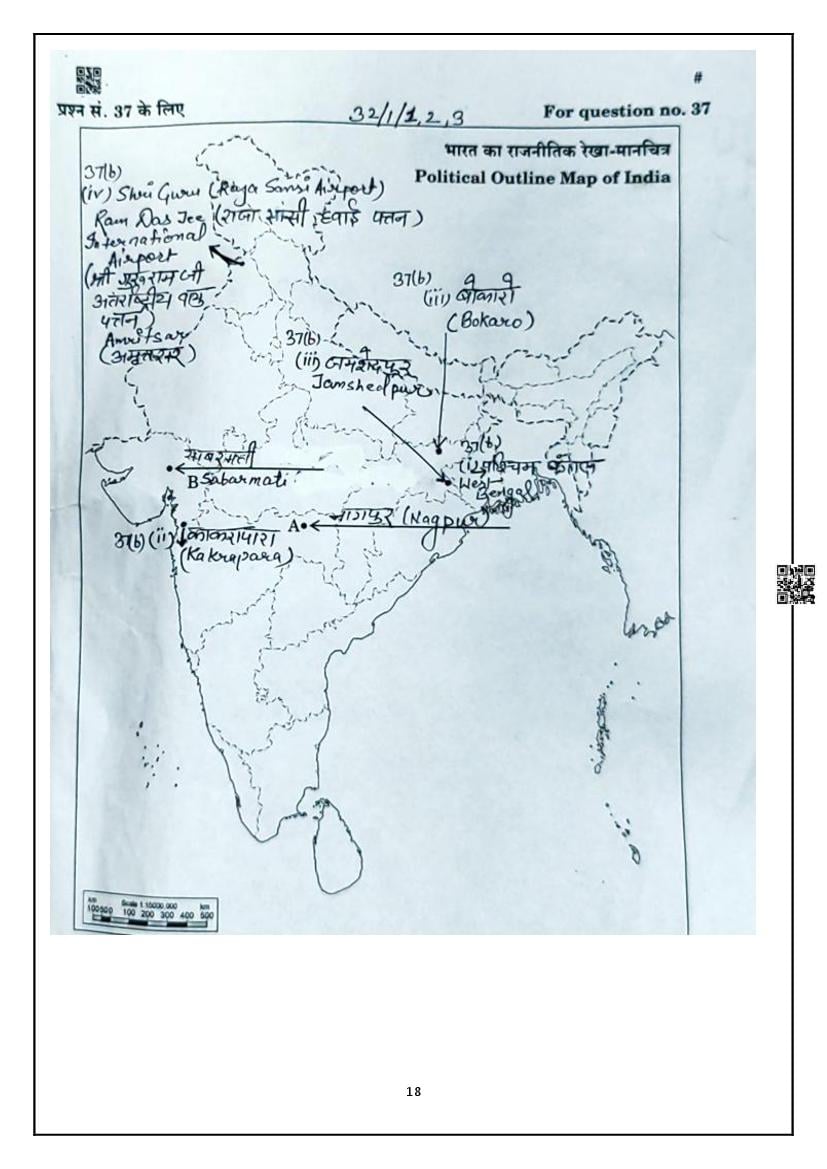 #
प्रश्न सं. 37 के लिए
32/1/1,2,3
For question no. 37
भारत का राजनीतिक रेखा-मानचित्र
Political Outline Map of India
37(b)
(iv) Shri Guru (Raja Sansi Airport)
Ram Das Jee (राजा सांसी हवाई पत्तन)
International
Airport
(श्री गुरु राम जी
अंतर्राष्ट्रीय
पत्तन)
Amritsar
(अमृतसर)
37(b)
(iii) बोकारो
(Bokaro)
37(b)
(iii) जमशेदपुर
Jamshedpur
37(b)
(i) पश्चिम
West
Bengal
साबरमती
B Sabarmati
A नागपुर (Nagpur)
37(b) (ii) काकरापारा
(Kakrapara)
Km Scale 1:15000,000 km
100 50 0 100 200 300 400 500
18